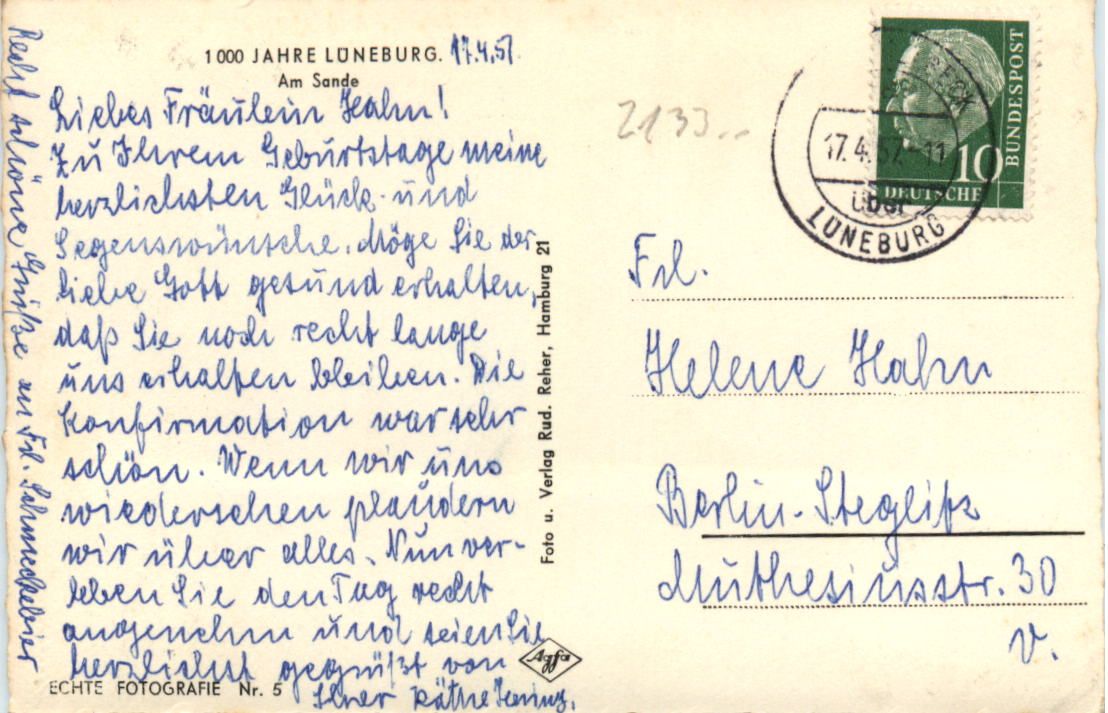 1000 JAHRE LÜNEBURG. 17.4.57.
Am Sande
Liebes Fräulein Hahn!
Zu Ihrem Geburtstage meine
herzlichsten Glück- und
Segenswünsche. Möge Sie der
liebe Gott gesund erhalten,
daß Sie noch recht lange
uns erhalten bleiben. Die
Konfirmation war sehr
schön. Wenn wir uns
wiedersehen plaudern
wir über alles. Nun ver-
leben Sie den Tag recht
angenehm und seien Sie
herzlichst gegrüßt von
Ihrer Käthe
Recht schöne Grüße an Frl. Schmeckebier
ECHTE FOTOGRAFIE Nr. 5
Foto u. Verlag Rud. Reher, Hamburg 21
Agfa
2133
17.4.57.-11
über
LÜNEBURG
10
DEUTSCHE
BUNDESPOST
Frl.
Helene Hahn
Berlin-Steglitz
Muthesiusstr. 30
v.